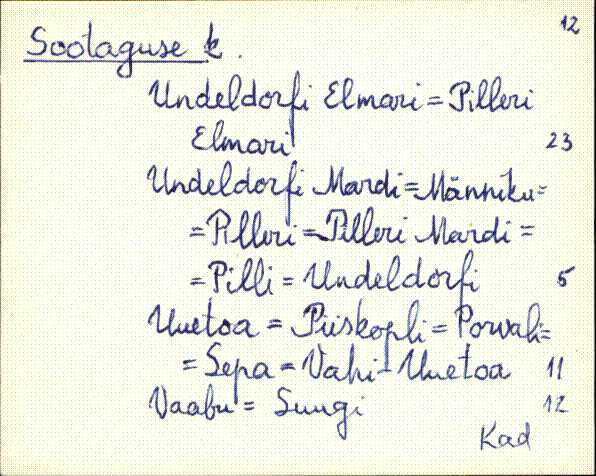 12
Sootaguse k.
Undeldorfi Elmari = Pilleri
Elmari 23
Undeldorfi Mardi = Männiku =
= Pilleri = Pilleri Mardi =
= Pilli = Undeldorfi 5
Uuetoa = Piiskopli = Porvali =
= Sepa = Vahi - Uuetoa 11
Vaabu = Suugi 12
Kad